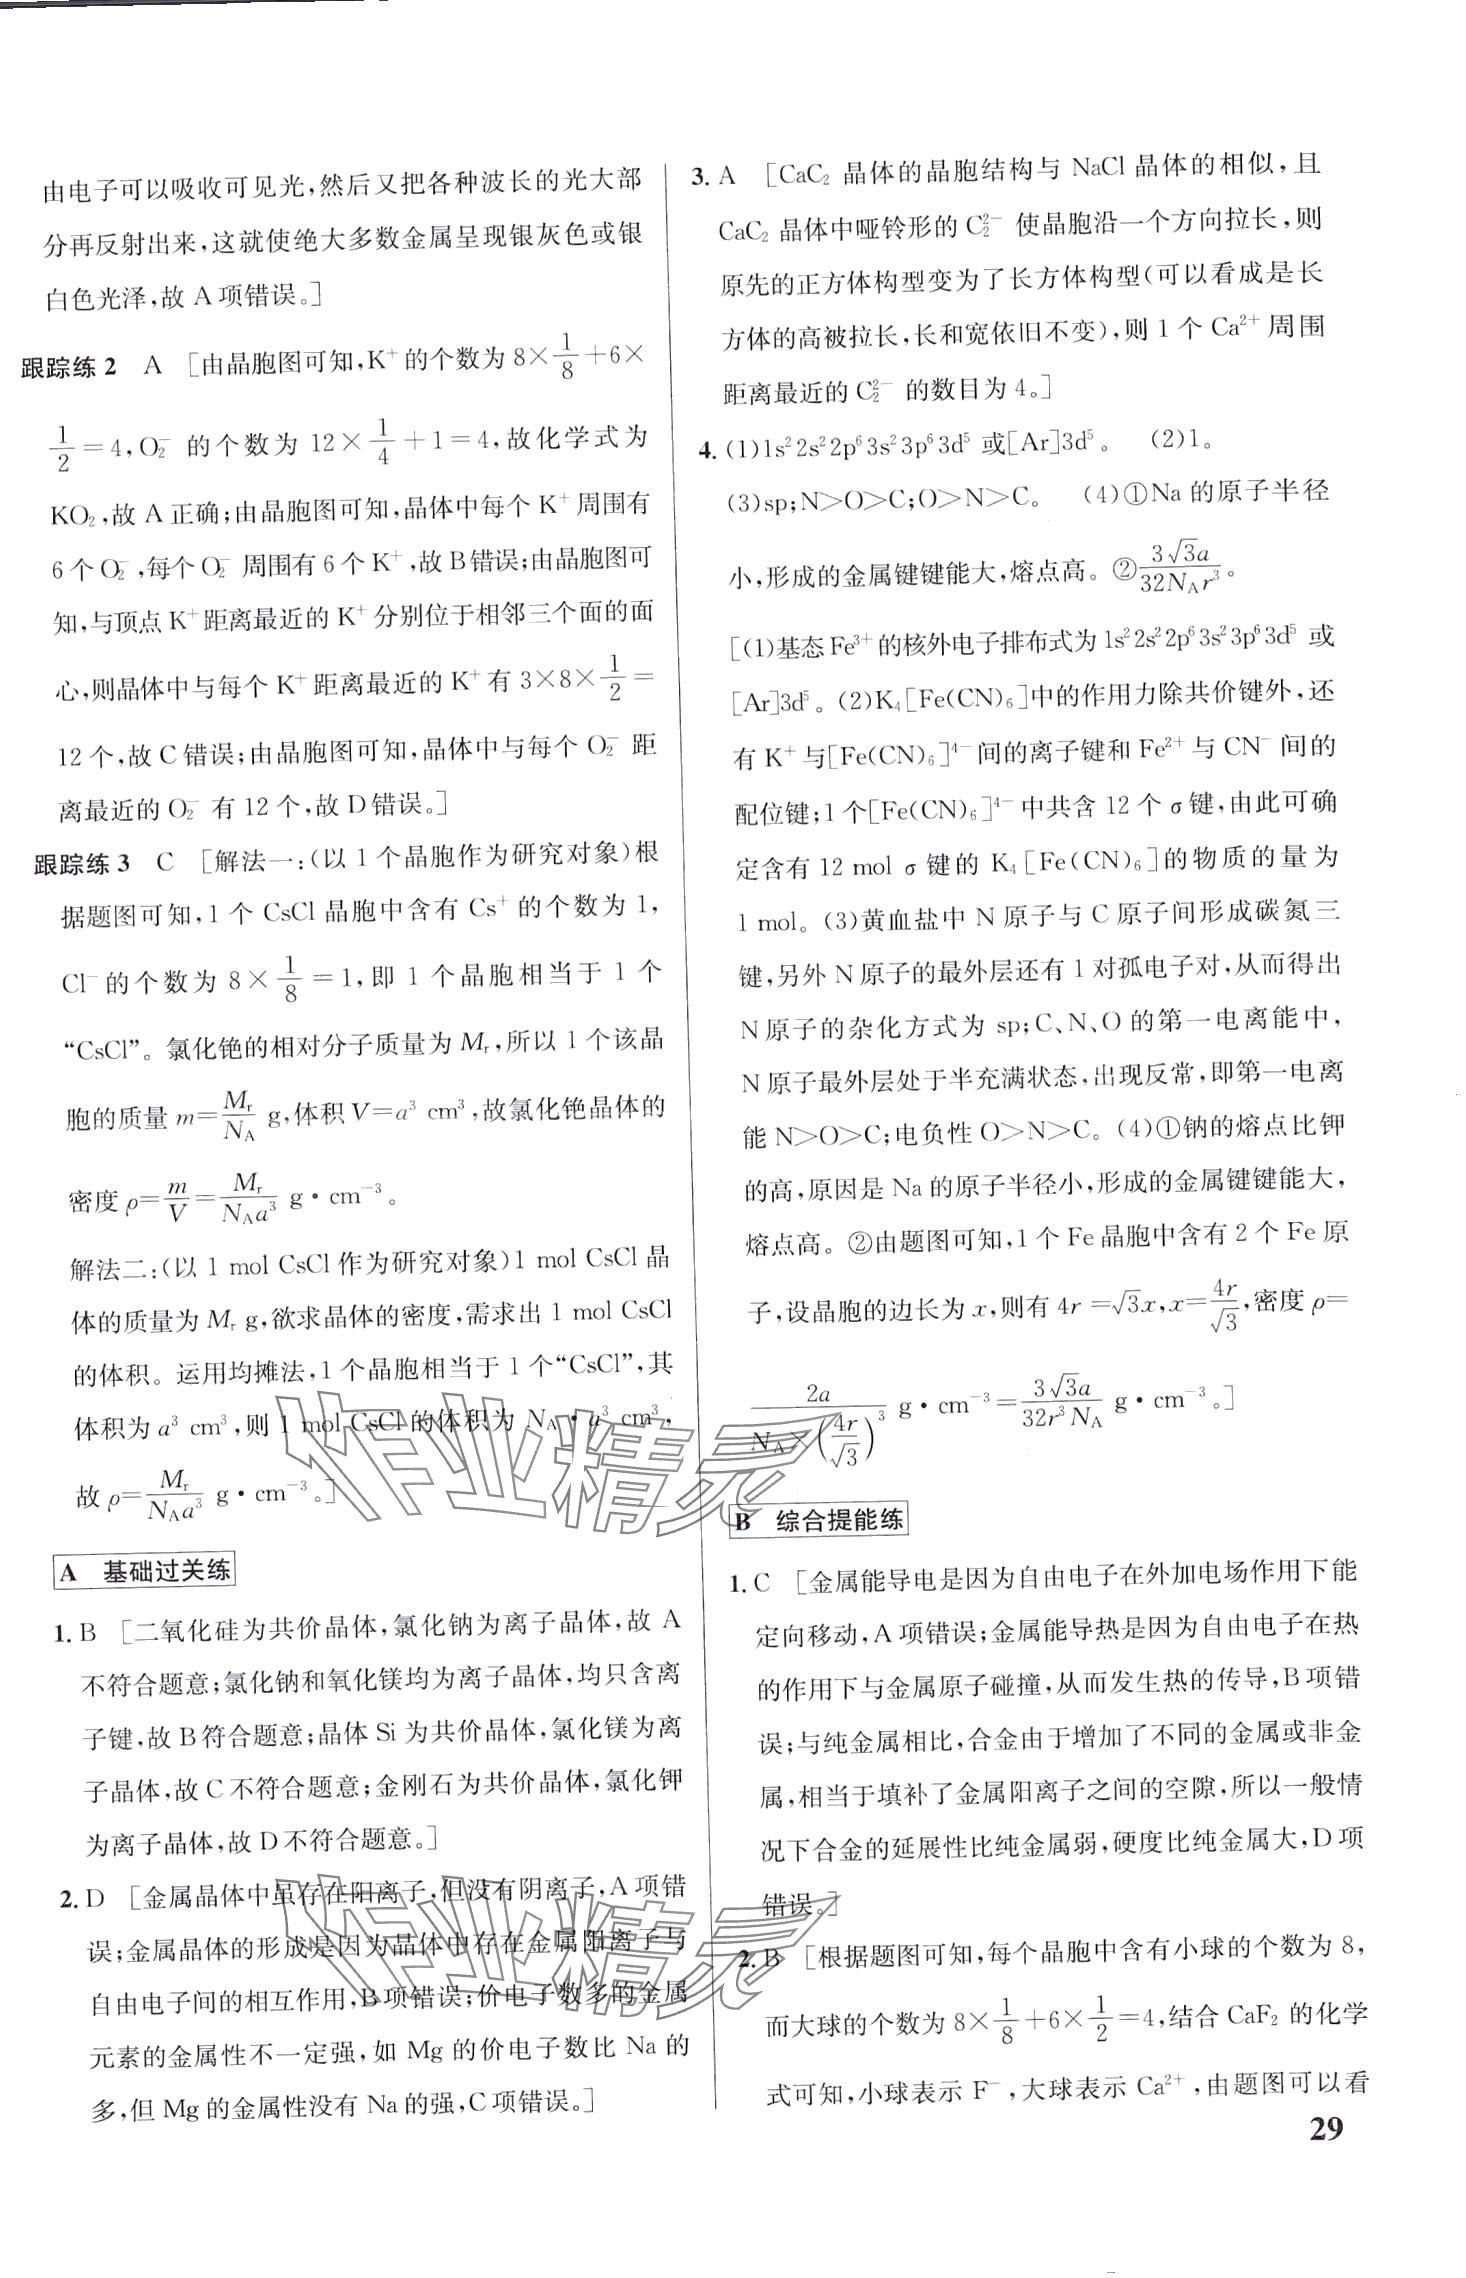 由电子可以吸收可见光,然后又把各种波长的光大部
分再反射出来,这就使绝大多数金属呈现银灰色或银
白色光泽,故 A 项错误。]
跟踪练 2 A [由晶胞图可知,K⁺的个数为 8×1/8+6×
1/2=4,O₂⁻ 的个数为 12×1/4+1=4,故化学式为
KO₂,故 A 正确;由晶胞图可知,晶体中每个 K⁺ 周围有
6 个 O₂⁻,每个 O₂⁻ 周围有 6 个 K⁺,故 B 错误;由晶胞图可
知,与顶点 K⁺距离最近的 K⁺ 分别位于相邻三个面的面
心,则晶体中与每个 K⁺ 距离最近的 K⁺ 有 3×8×1/2=
12 个,故 C 错误;由晶胞图可知,晶体中与每个 O₂⁻ 距
离最近的 O₂⁻ 有 12 个,故 D 错误。]
跟踪练 3 C [解法一:(以 1 个晶胞作为研究对象)根
据题图可知,1 个 CsCl 晶胞中含有 Cs⁺ 的个数为 1,
Cl⁻ 的个数为 8×1/8=1,即 1 个晶胞相当于 1 个
“CsCl”。氯化铯的相对分子质量为 Mᵣ,所以 1 个该晶
胞的质量 m=Mᵣ/N_A g,体积 V=a³ cm³,故氯化铯晶体的
密度 ρ=m/V=Mᵣ/(N_A a³) g·cm⁻³。
解法二:(以 1 mol CsCl 作为研究对象)1 mol CsCl 晶
体的质量为 Mᵣ g,欲求晶体的密度,需求出 1 mol CsCl
的体积。运用均摊法,1 个晶胞相当于 1 个“CsCl”,其
体积为 a³ cm³,则 1 mol CsCl 的体积为 N_A·a³ cm³,
故 ρ=Mᵣ/(N_A a³) g·cm⁻³。]
A 基础过关练
1. B [二氧化硅为共价晶体,氯化钠为离子晶体,故 A
不符合题意;氯化钠和氧化镁均为离子晶体,均只含离
子键,故 B 符合题意;晶体 Si 为共价晶体,氯化镁为离
子晶体,故 C 不符合题意;金刚石为共价晶体,氯化钾
为离子晶体,故 D 不符合题意。]
2. D [金属晶体中虽存在阳离子,但没有阴离子,A 项错
误;金属晶体的形成是因为晶体中存在金属阳离子与
自由电子间的相互作用,B 项错误;价电子数多的金属
元素的金属性不一定强,如 Mg 的价电子数比 Na 的
多,但 Mg 的金属性没有 Na 的强,C 项错误。]
3. A [CaC₂ 晶体的晶胞结构与 NaCl 晶体的相似,且
CaC₂ 晶体中哑铃形的 C₂²⁻ 使晶胞沿一个方向拉长,则
原先的正方体构型变为了长方体构型(可以看成是长
方体的高被拉长,长和宽依旧不变),则 1 个 Ca²⁺ 周围
距离最近的 C₂²⁻ 的数目为 4。]
4. (1)1s²2s²2p⁶3s²3p⁶3d⁵ 或[Ar]3d⁵。 (2)1。
(3)sp;N>O>C;O>N>C。 (4)①Na 的原子半径
小,形成的金属键键能大,熔点高。②3√3a/(32N_A r³)。
[(1)基态 Fe³⁺ 的核外电子排布式为 1s²2s²2p⁶3s²3p⁶3d⁵ 或
[Ar]3d⁵。(2)K₄[Fe(CN)₆]中的作用力除共价键外,还
有 K⁺ 与[Fe(CN)₆]⁴⁻ 间的离子键和 Fe²⁺ 与 CN⁻ 间的
配位键;1 个[Fe(CN)₆]⁴⁻ 中共含 12 个 σ 键,由此可确
定含有 12 mol σ 键的 K₄[Fe(CN)₆]的物质的量为
1 mol。(3)黄血盐中 N 原子与 C 原子间形成碳氮三
键,另外 N 原子的最外层还有 1 对孤电子对,从而得出
N 原子的杂化方式为 sp;C、N、O 的第一电离能中,
N 原子最外层处于半充满状态,出现反常,即第一电离
能 N>O>C;电负性 O>N>C。(4)①钠的熔点比钾
的高,原因是 Na 的原子半径小,形成的金属键键能大,
熔点高。②由题图可知,1 个 Fe 晶胞中含有 2 个 Fe 原
子,设晶胞的边长为 x,则有 4r=√3x,x=4r/√3,密度 ρ=
2a/(N_A×(4r/√3)³) g·cm⁻³=3√3a/(32r³N_A) g·cm⁻³。]
B 综合提能练
1. C [金属能导电是因为自由电子在外加电场作用下能
定向移动,A 项错误;金属能导热是因为自由电子在热
的作用下与金属原子碰撞,从而发生热的传导,B 项错
误;与纯金属相比,合金由于增加了不同的金属或非金
属,相当于填补了金属阳离子之间的空隙,所以一般情
况下合金的延展性比纯金属弱,硬度比纯金属大,D 项
错误。]
2. B [根据题图可知,每个晶胞中含有小球的个数为 8,
而大球的个数为 8×1/8+6×1/2=4,结合 CaF₂ 的化学
式可知,小球表示 F⁻,大球表示 Ca²⁺,由题图可以看
29
作业精灵
作业精灵